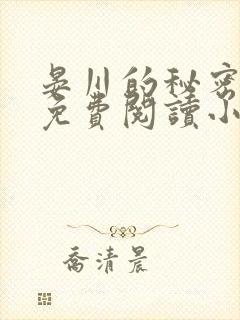 晏川的秘密
免費閱讀小
喬清晨